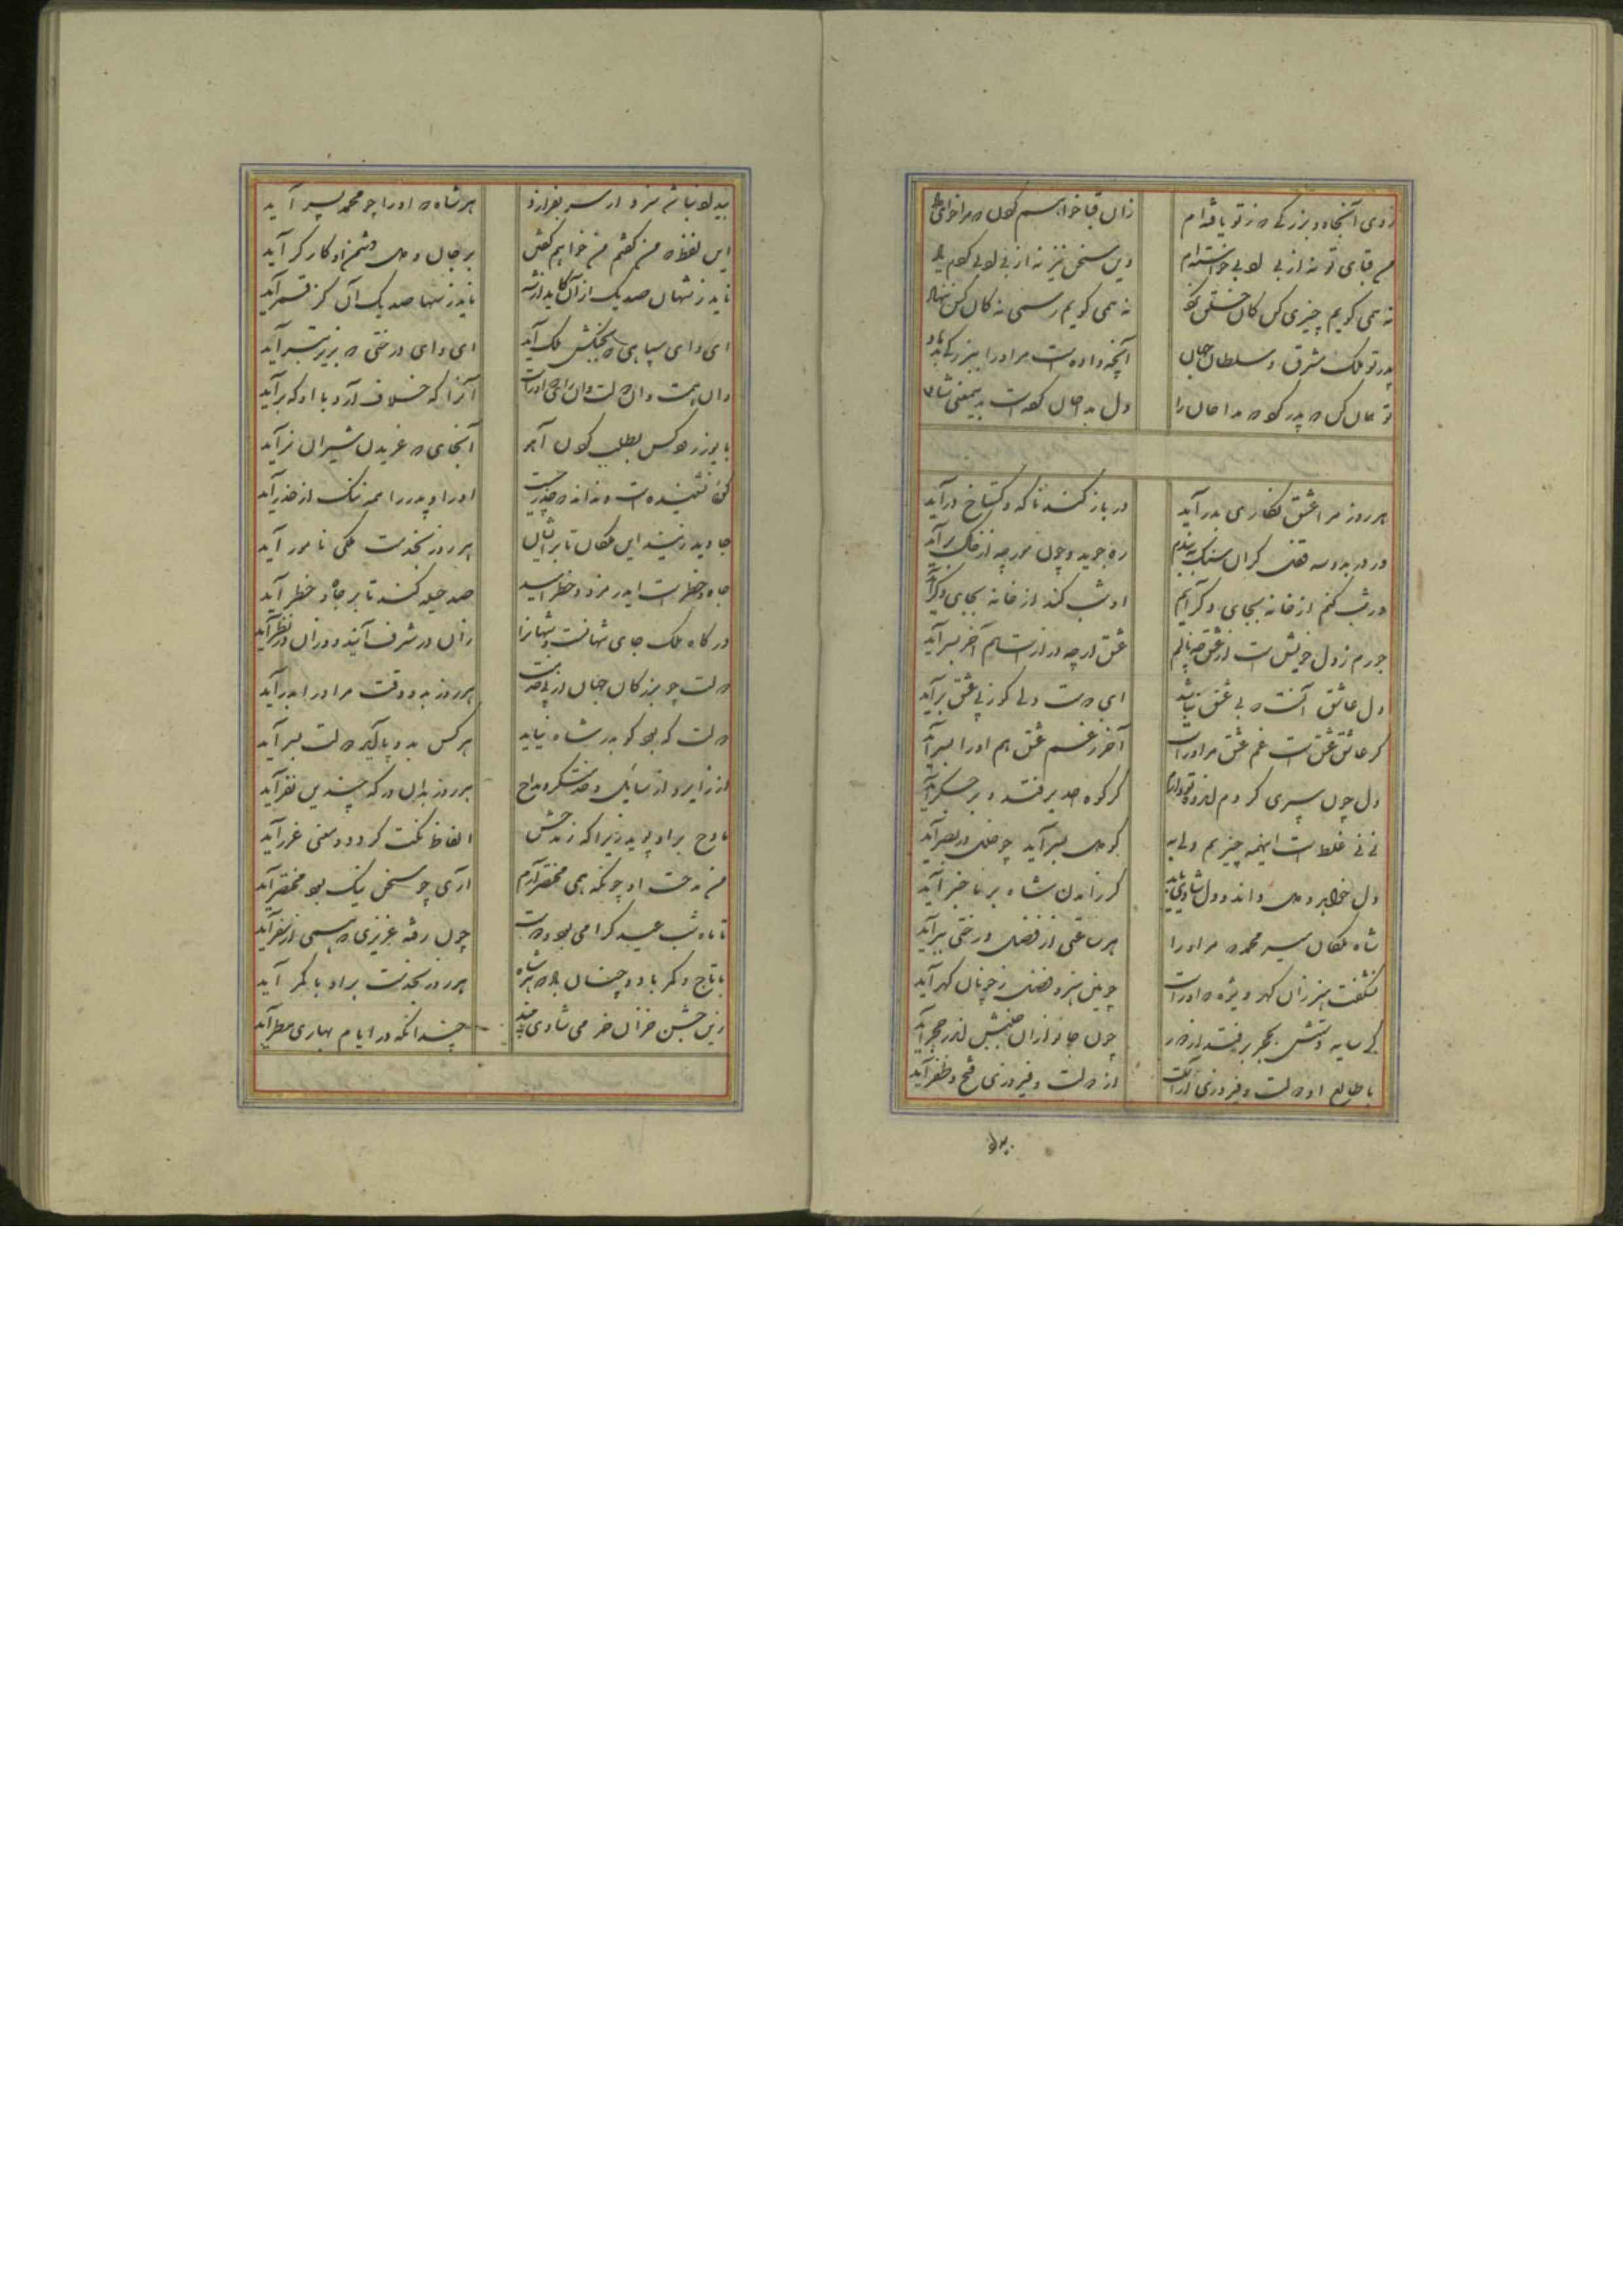 زوی آنجاه و بزرگی که ز تو یافته ام زان قبا خواستم کون که مرا خواهی
من قبای تو نه از بی بودی خواسته ام وین سخن نیز نه از بی بودی کردم یاد
نه همی کویم چیزی کن کان کس نکند نه همی کویم رسمی نه کان کس ننهاد
پدر تو ملک شرق و سلطان جهان آنچه داده است مر او را بزرگی
تو همان کن که پدر کرد که مداحان را دل مداحان کرده است بدین معنی شاد
هر روز مرا عشق نکاری بدر آید در باز کند ناکه و کستاخ درآید
ور در بدو سه قفل کران سنک ببندم ره جوید و چون مورچه از خاک برآید
ور شب کنم از خانه بجای دکر آیم او شب کند از خانه بجای دکر آید
جورم ز دل خویشست از عشق چه نالم عشق ارچه درازست هم آخر بسر آید
دل عاشق آنست که بی عشق نباشد ای دوست دلی کو ز پی عشق برآید
کر عاشق عشقست غم عشق مر او راست آخر غم عشق هم او را بسر آید
دل چون سپری کردم کر کوه احد برفتد و بر جکر آید
نی نی غلطست اینهمه چیزیم ولیه کو دل بسر آید چو خلل در بصر آید
دل خواهد و دل داند و دل شاد کر زآمدن شاه بر ما خبر آید
شاه ملکان میر محمد که مر او را هر ساعتی از فضل درختی ببر آید
نشکفت هنر زان کهر ویژه که او راست چونین هنر و فضل ز چونان کهر آید
کی سایه دستش بحجر برفتد از دور چون جانوران جنبش اندر حجر آید
با طالع او دولت و فیروزی از دولت و فیروزی فتح و ظفر آید
بیداد نباشد سزد ار سر بفرازد هر شاه که او را چو محمد پسر آید
این لفظ که من کفتم من خواهم کفتن بر جان و دل دشمن او کارکر آید
ناید ز شهان صد یک از آن کاید از شه ناید ز سها صد یک آن کز قمر آید
ای وای سپاهی که بجنکش ملک آید ای وای درختی که بزیر تبر آید
وان همت و آن دولت و آن رای که او راست آنرا که خلاف آرد با او که برآید
با یوز رود کس بطلب کردن آهو آنجای که غریدن شیران نر آید
کس نشنیده است و نداند که حذر چیست او را و پدر را همه ننک از حذر آید
جاوید زیند این ملکان تا بر ایشان هر روز بخدمت ملکی نامور آید
جاه و خطرست ایدر مرد خطر امید صد حیله کند تا بر جاه و خطر آید
درکاه ملک جای شهانست شهانرا زان در شرف آیند و زان در نظر آید
دولت چو بزرکان جهان از پی خدمت هر روز بدو وقت مر او را بدر آید
دولت که بود کو بدر شاه نیاید هر کس بدو پا آید دولت بسر آید
از زایر و از سایل و خدمتکر و مداح هر روز بدان درکه چندین نفر آید
مداح بر او پوید زیرا که ز مدحش الفاظ نکت کردد و معنی غرر آید
من مدحت او چونکه همی مختصر آرم آری چو سخن نیک بود مختصر آید
تا ماه شب عید کرامی بود و دوست چون رفته عزیزی که همی از سفر آید
با تاج و کمر باد و چنان باد که هر شاه هر روز بخدمت بر او با کمر آید
زین جشن خزان خرمی و شادی بیند چندانکه در ایام بهاری مطر آید